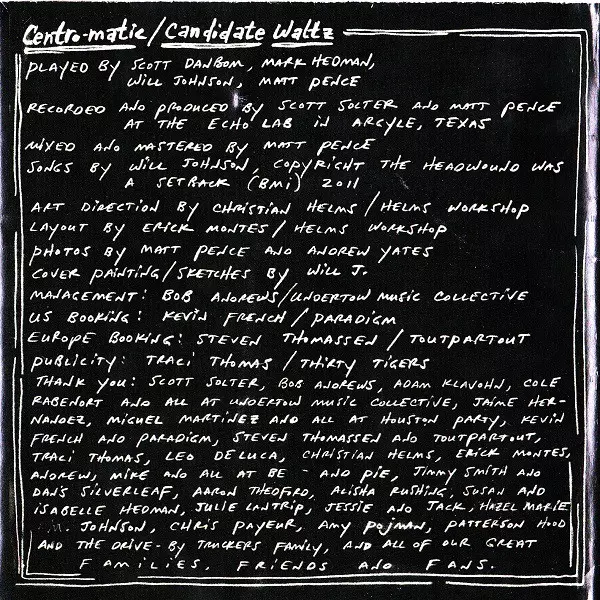 Centro-matic/Candidate Waltz
PLAYED BY SCOTT DANBOM, MARK HEDMAN,
WILL JOHNSON, MATT PENCE
RECORDED AND PRODUCED BY SCOTT SOLTER AND MATT PENCE
AT THE ECHO LAB IN ARGYLE, TEXAS
MIXED AND MASTERED BY MATT PENCE
SONGS BY WILL JOHNSON, COPYRIGHT THE HEADWOUND WAS
A SETBACK (BMi) 2011
ART DIRECTION BY CHRISTIAN HELMS/HELMS WORKSHOP
LAYOUT BY ERICK MONTES/HELMS WORKSHOP
PHOTOS BY MATT PENCE AND ANDREW YATES
COVER PAINTING/SKETCHES BY WILL J.
MANAGEMENT: BOB ANDREWS/UNDERTOW MUSIC COLLECTIVE
US BOOKING: KEVIN FRENCH/PARADIGM
EUROPE BOOKING: STEVEN THOMASSEN/TOUTPARTOUT
PUBLICITY: TRACI THOMAS/THIRTY TIGERS
THANK YOU: SCOTT SOLTER, BOB ANDREWS, ADAM KLAVOHN, COLE
RABENORT AND ALL AT UNDERTOW MUSIC COLLECTIVE, JAIME HER-
NANDEZ, MIGUEL MARTINEZ AND ALL AT HOUSTON PARTY, KEVIN
FRENCH AND PARADIGM, STEVEN THOMASSEN AND TOUTPARTOUT,
TRACI THOMAS, LEO DELUCA, CHRISTIAN HELMS, ERICK MONTES,
ANDREW, MIKE AND ALL AT BE - AND PIE, JIMMY SMITH AND
DAN'S SILVERLEAF, AARON THEDFORD, ALISHA RUSHING, SUSAN AND
ISABELLE HEDMAN, JULIE LANTRIP, JESSIE AND JACK, HAZEL MARIE
JOHNSON, CHRIS PAYEUR, AMY POJMAN, PATTERSON HOOD
AND THE DRIVE-BY TRUCKERS FAMILY, AND ALL OF OUR GREAT
FAMILIES, FRIENDS AND FANS.